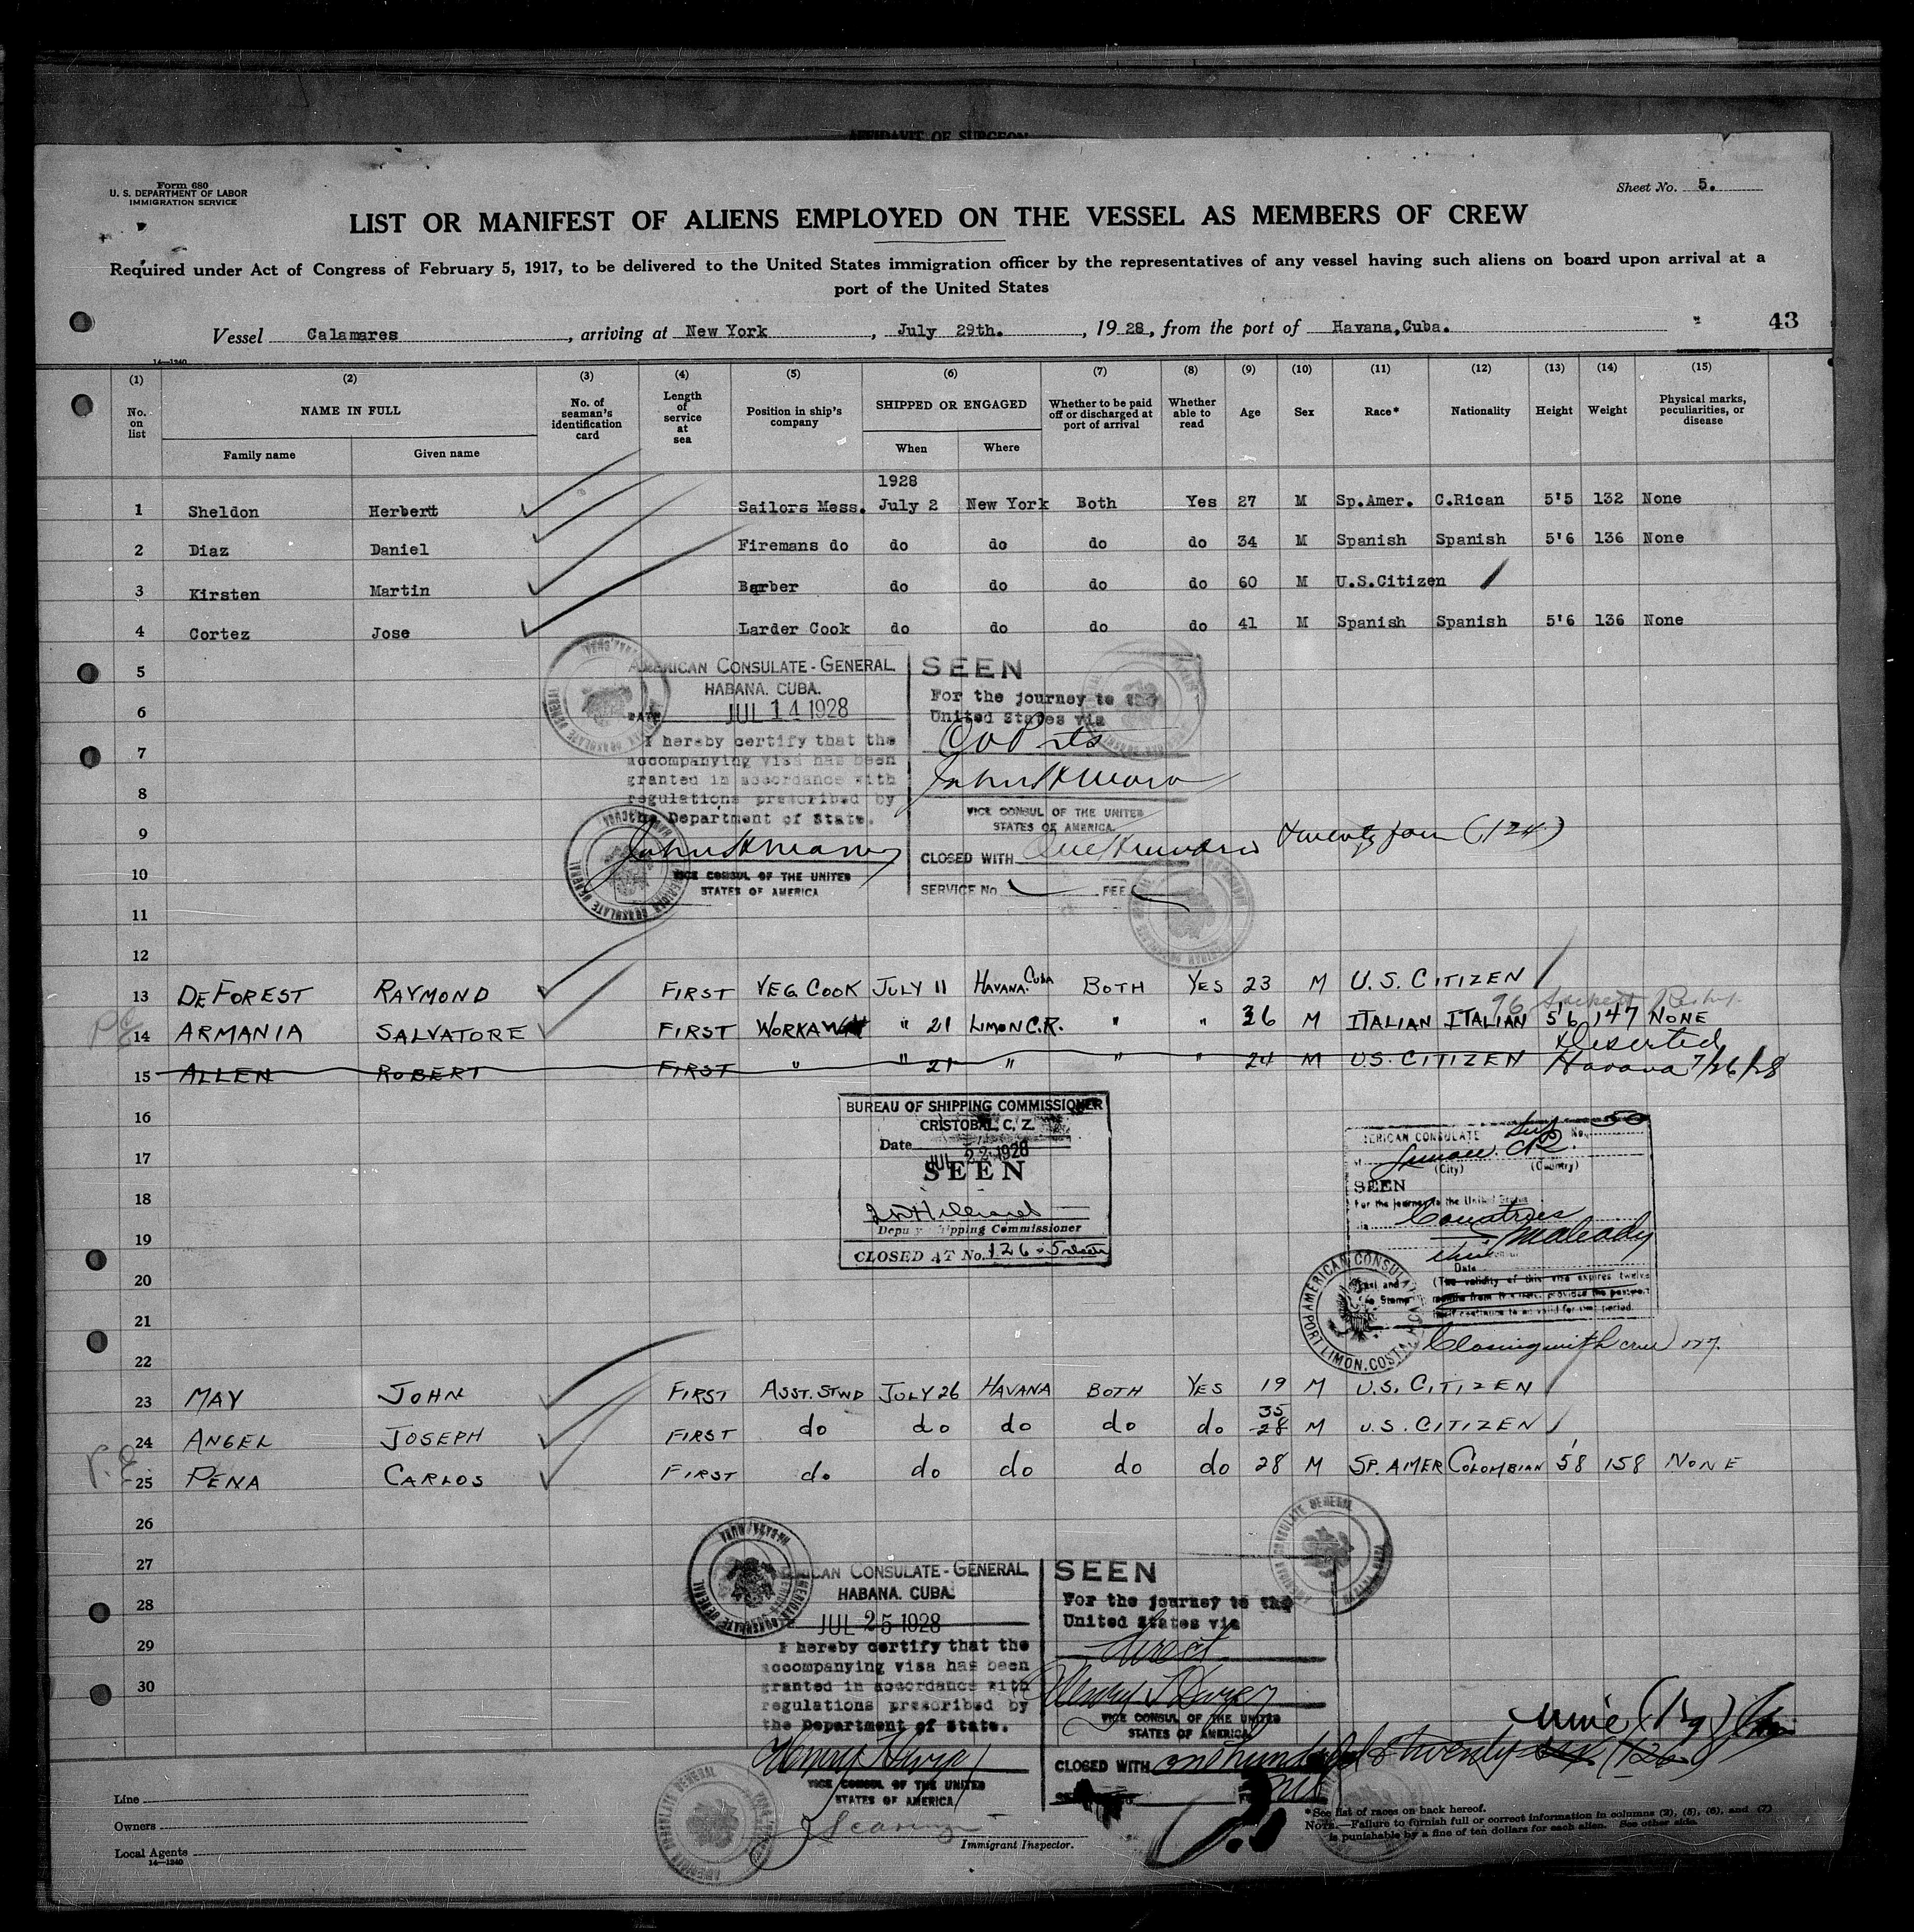 AFFIDAVIT OF SURGEON
Form 680
U. S. DEPARTMENT OF LABOR
IMMIGRATION SERVICE
Sheet No. 5.
LIST OR MANIFEST OF ALIENS EMPLOYED ON THE VESSEL AS MEMBERS OF CREW
Required under Act of Congress of February 5, 1917, to be delivered to the United States immigration officer by the representatives of any vessel having such aliens on board upon arrival at a
port of the United States
Vessel Calamares, arriving at New York, July 29th., 1928, from the port of Havana,Cuba.
43
14—1240
(1) (2) (3) (4) (5) (6) (7) (8) (9) (10) (11) (12) (13) (14) (15)
No. on list NAME IN FULL No. of seaman's identification card Length of service at sea Position in ship's company SHIPPED OR ENGAGED Whether to be paid off or discharged at port of arrival Whether able to read Age Sex Race* Nationality Height Weight Physical marks, peculiarities, or disease
Family name Given name When Where
1928
1 Sheldon Herbert Sailors Mess. July 2 New York Both Yes 27 M Sp.Amer. C.Rican 5'5 132 None
2 Diaz Daniel Firemans do do do do do 34 M Spanish Spanish 5'6 136 None
3 Kirsten Martin Barber do do do do 60 M U.S.Citizen
4 Cortez Jose Larder Cook do do do do 41 M Spanish Spanish 5'6 136 None
5
6
7
8
9
10
11
12
AMERICAN CONSULATE-GENERAL.
HABANA. CUBA.
DATE JUL 14 1928
I hereby certify that the
accompanying visa has been
granted in accordance with
regulations prescribed by
the Department of State.
VICE CONSUL OF THE UNITED
STATES OF AMERICA
SEEN
For the journey to the
United States via
VICE CONSUL OF THE UNITED
STATES OF AMERICA.
CLOSED WITH One Hundred twenty four (124)
SERVICE No. FEE
13 DEFOREST RAYMOND FIRST VEG COOK JULY 11 HAVANA. CUBA BOTH YES 23 M U.S. CITIZEN
14 ARMANIA SALVATORE FIRST WORKAWAY " 21 LIMON C.R. " " 36 M ITALIAN ITALIAN 5'6 147 NONE
Deserted
15 ALLEN ROBERT FIRST " " 21 " " " 24 M U.S. CITIZEN Havana 7/26/28
16
17
18
19
20
21
22
BUREAU OF SHIPPING COMMISSIONER
CRISTOBAL, C. Z.
Date JUL 22 1928
SEEN
Deputy Shipping Commissioner
CLOSED AT No. 126
AMERICAN CONSULATE No. 50
(City) (Country)
SEEN
For the journey to the United States
via Countries
Date
(The validity of this visa expires twelve
months from this date, provided the passport
itself continues to be valid for that period.
AMERICAN CONSULAR
PORT LIMON, COSTA
Closing with crew 127.
23 MAY JOHN FIRST ASST. STWD JULY 26 HAVANA BOTH YES 19 M U.S. CITIZEN
24 ANGEL JOSEPH FIRST do do do do do 28 35 M U.S. CITIZEN
P.E.
25 PENA CARLOS FIRST do do do do do 28 M SP. AMER COLOMBIAN 5'8 158 NONE
26
27
28
29
30
AMERICAN CONSULATE-GENERAL
HABANA. CUBA.
JUL 25 1928
I hereby certify that the
accompanying visa has been
granted in accordance with
regulations prescribed by
the Department of State.
VICE CONSUL OF THE UNITED
STATES OF AMERICA
SEEN
For the journey to the
United States via
direct
VICE CONSUL OF THE UNITED
STATES OF AMERICA
nine (129)
CLOSED WITH one hundred & twenty six (126)
Line
Owners
Local Agents
14—1240
Immigrant Inspector.
*See list of races on back hereof.
NOTE.—Failure to furnish full or correct information in columns (2), (5), (6), and (7)
is punishable by a fine of ten dollars for each alien. See other side.